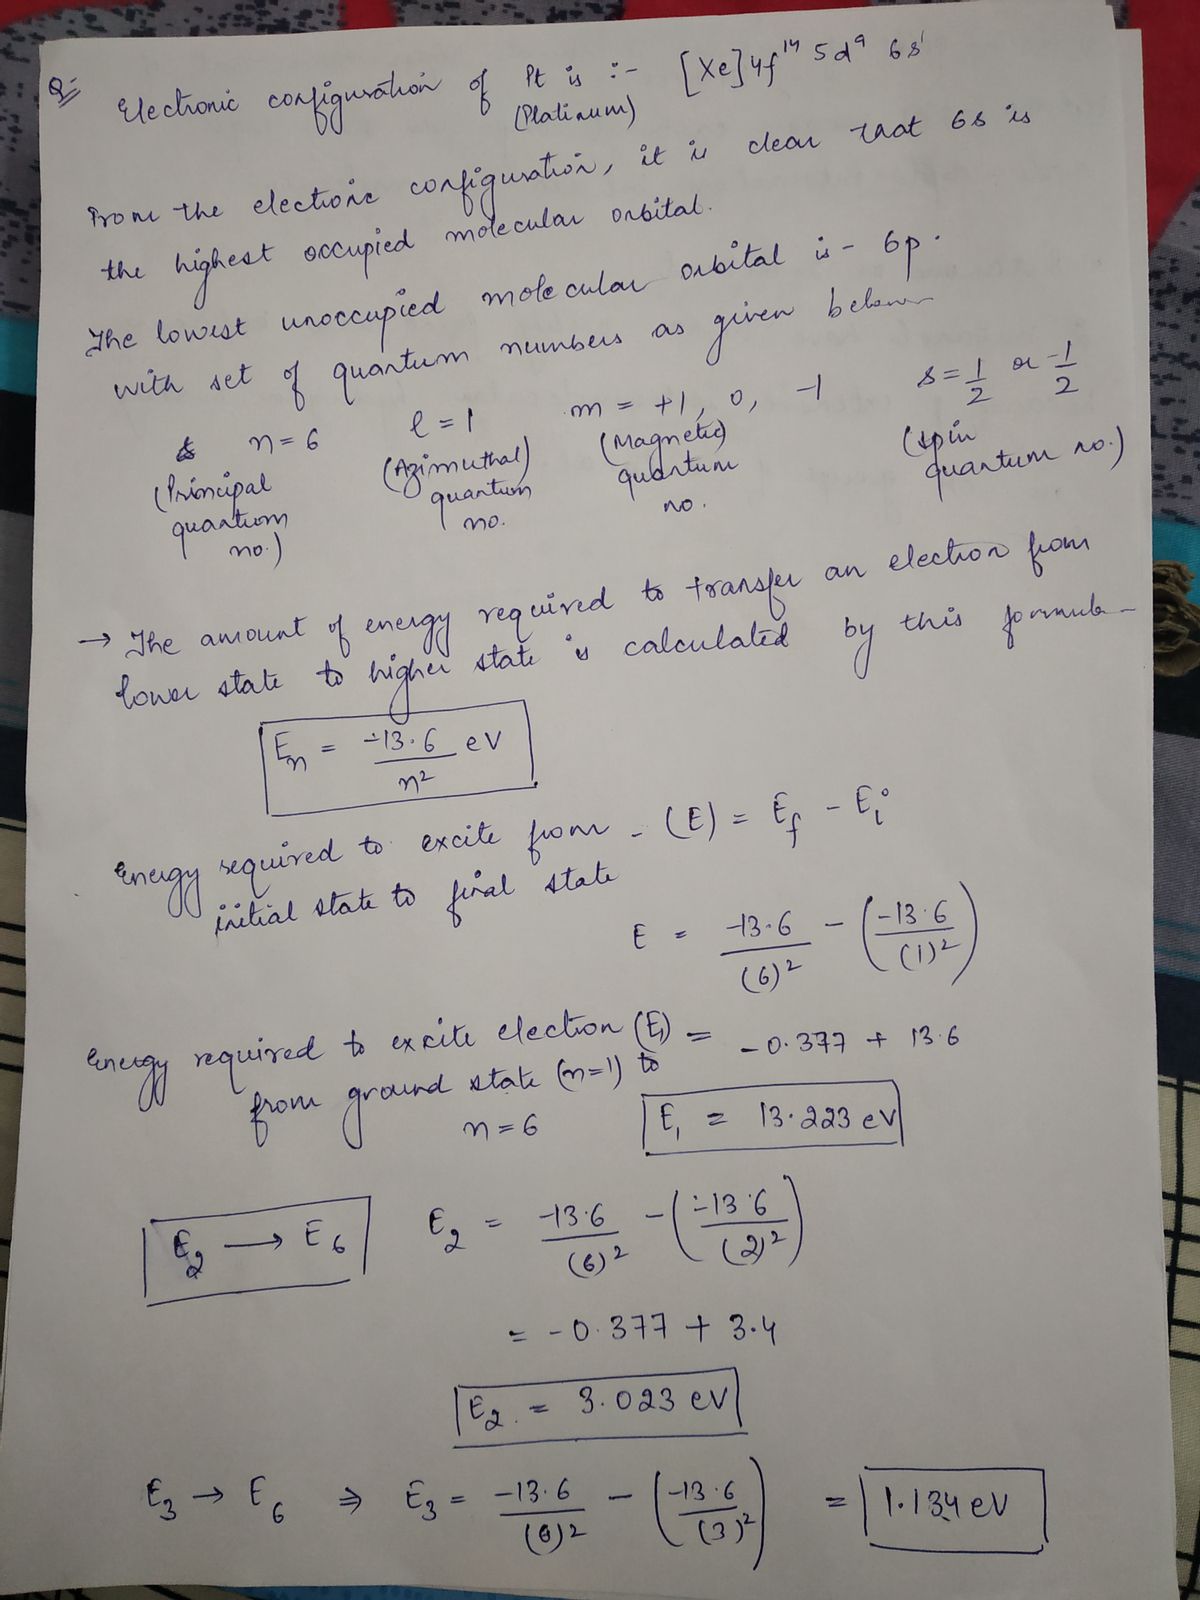 Q:- Electronic configuration of Pt is :- [Xe]4f¹⁴ 5d⁹ 6s¹
(Platinum)
From the electronic configuration, it is clear that 6s is
the highest occupied molecular orbital.
The lowest unoccupied molecular orbital is - 6p.
with set of quantum numbers as given below
n = 6 l = 1 m = +1, 0, -1 s = 1/2 or -1/2
(Principal quantum no.) (Azimuthal) quantum no. (Magnetic) quantum no. (spin quantum no.)
→ The amount of energy required to transfer an election from
lower state to higher state is calculated by this formula -
En = -13.6/n² eV
Energy required to excite from - (E) = Ef - Ei
initial state to final state
E = -13.6/(6)² - (-13.6/(1)²)
Energy required to excite election (E₁) = -0.377 + 13.6
from ground state (n=1) to
n = 6 E₁ = 13.223 eV
E₂ → E₆ E₂ = -13.6/(6)² - (-13.6/(2)²)
= -0.377 + 3.4
E₂ = 3.023 eV
E₃ → E₆ ⇒ E₃ = -13.6/(6)² - (-13.6/(3)²) = 1.134 eV